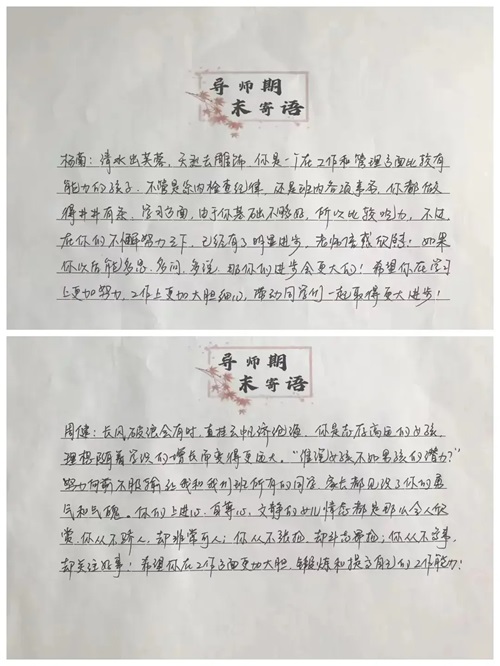 导师期
末寄语
杨南：清水出芙蓉，天然去雕饰。你是一个在工作和管理方面比较有
能力的孩子，不管是系内检查纪律，还是班内各项事务，你都做
得井井有条。学习方面，由于你基础不够好，所以比较吃力，不过
在你的不懈努力之下，已经有了明显进步，老师倍感欣慰！如果
你以后能多思、多问、多说，那你的进步会更大的！希望你在学习
上更加努力，工作上更加大胆细心，带动同学们一起取得更大进步！
导师期
末寄语
周健：长风破浪会有时，直挂云帆济沧海。你是志存高远的女孩，
理想随着学识的增长而变得更远大。“谁说女孩不如男孩的潜力？”
努力何劳不服输让我和我们班所有的同学、家长都见识了你的勇
气和气魄。你的上进心、责任心、文静的女儿情态都是那么令人欣
赏，你从不骄人，却非常可人；你从不张扬，却斗志昂扬；你从不多事，
却关注好事！希望你在工作方面更加大胆，锻炼和提高自己的工作能力！